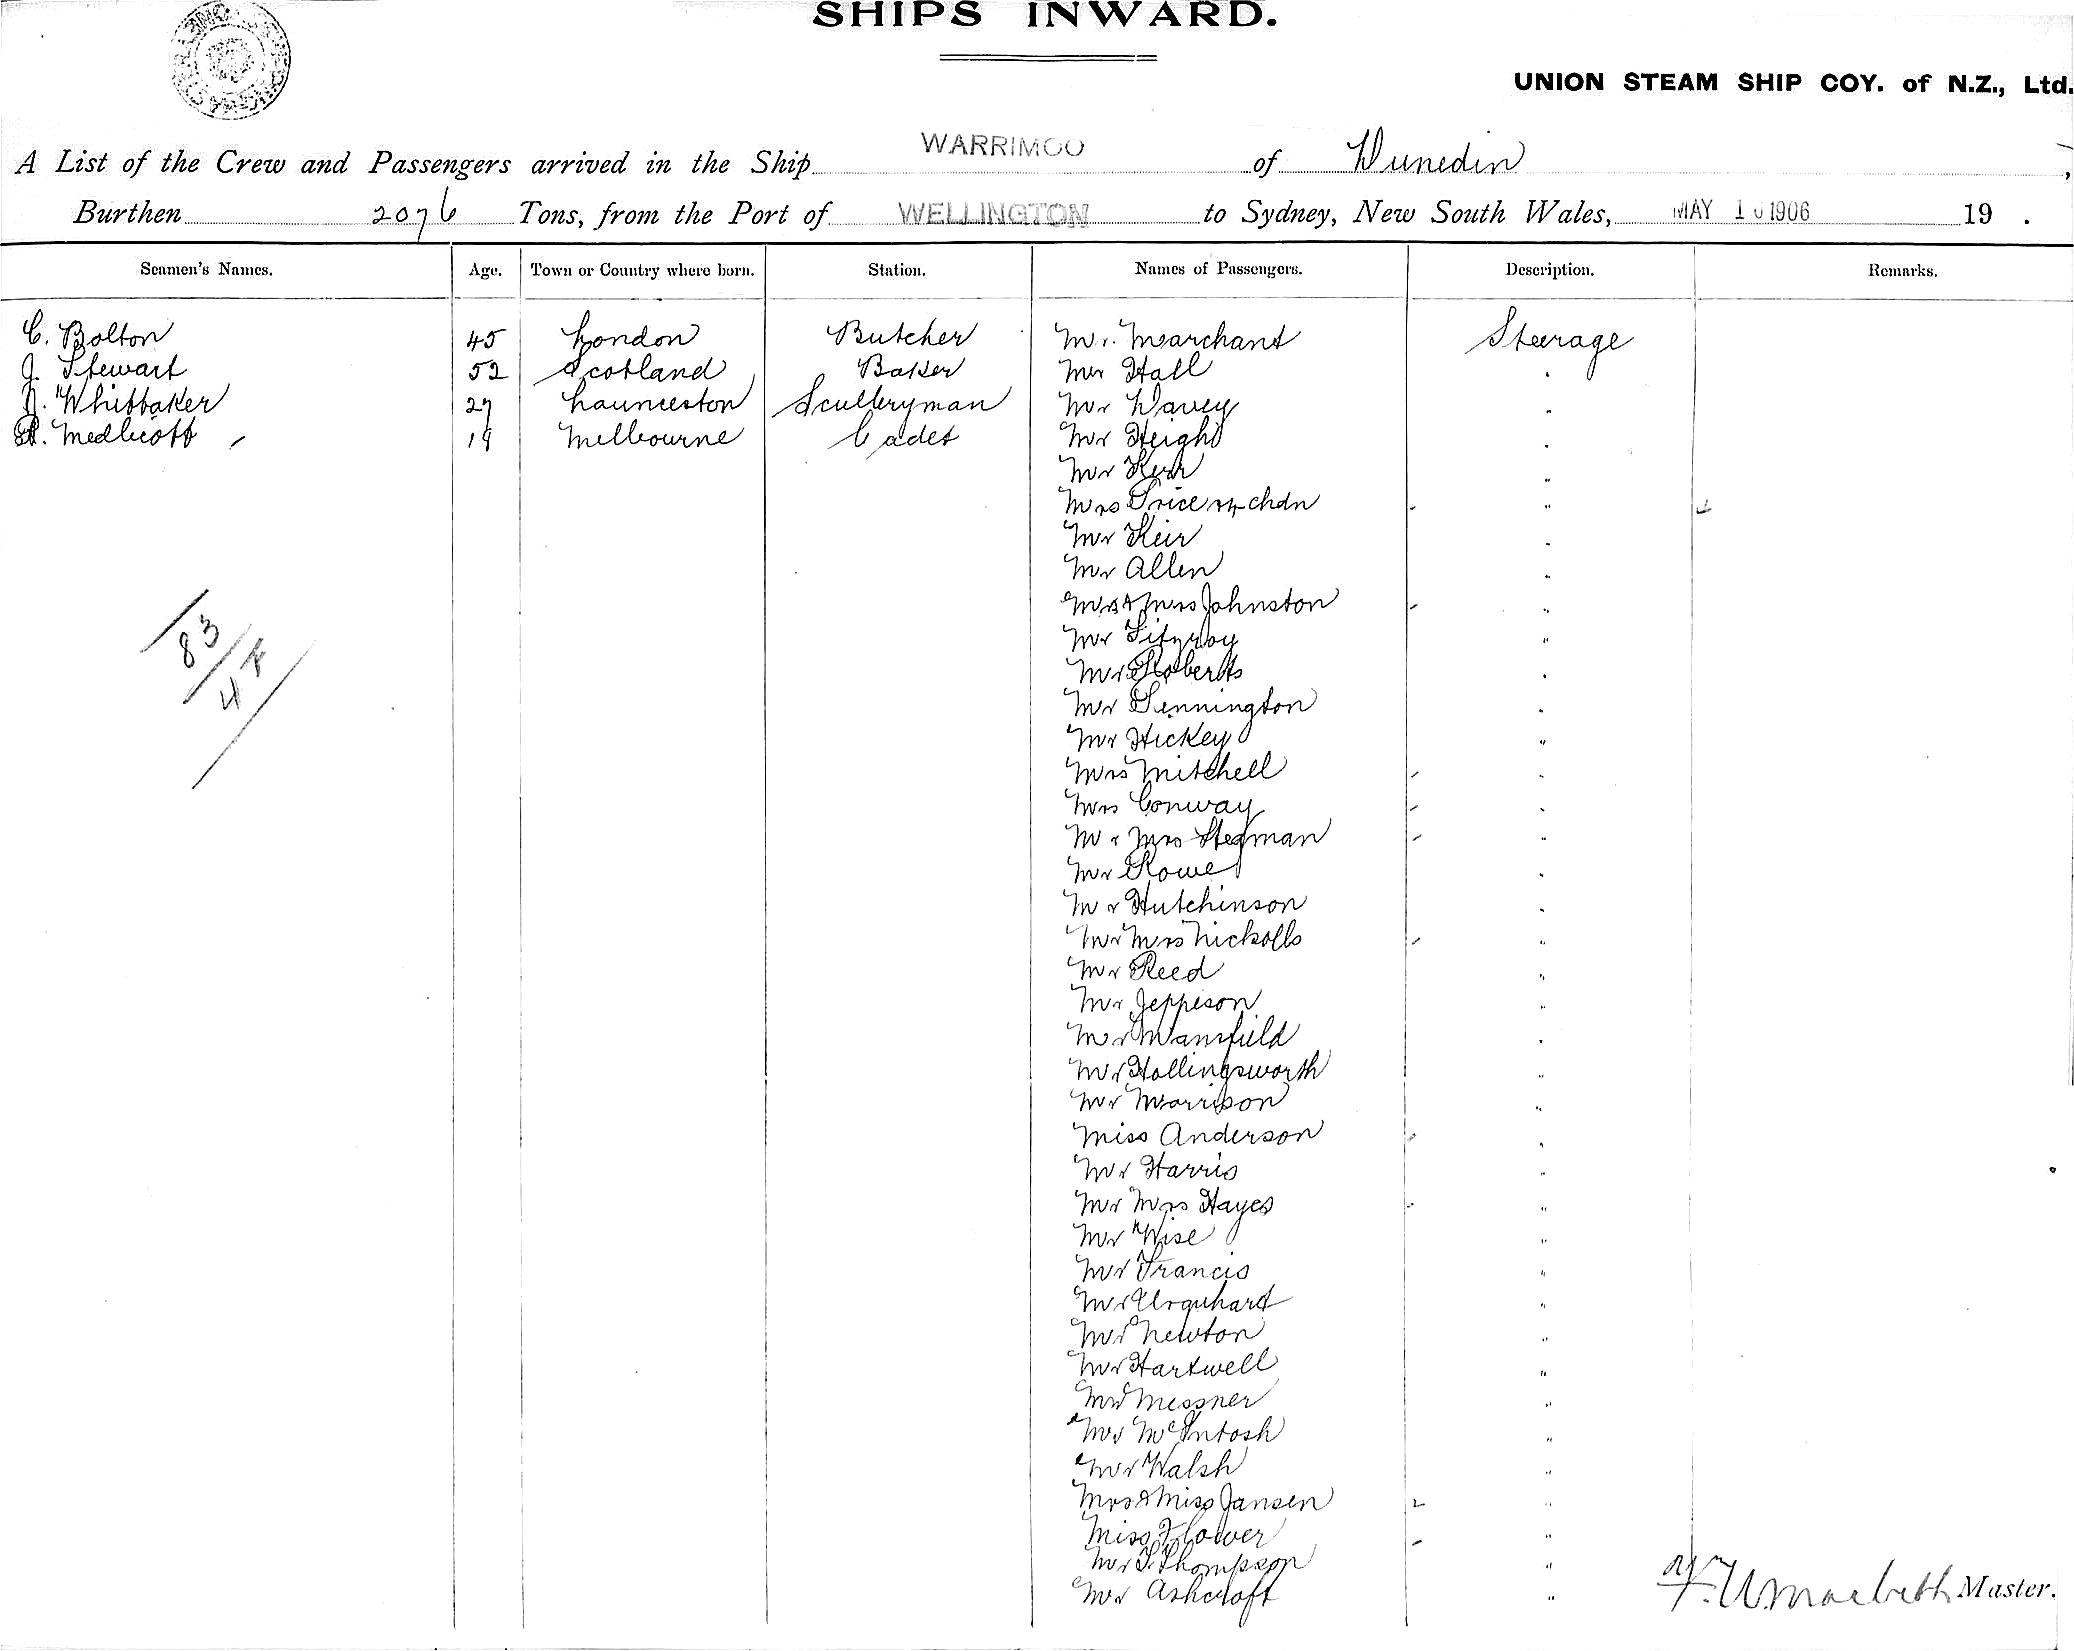 SHIPS INWARD.
UNION STEAM SHIP COY. of N.Z., Ltd.
A List of the Crew and Passengers arrived in the Ship WARRIMOO of Dunedin,
Burthen 2076 Tons, from the Port of WELLINGTON to Sydney, New South Wales, MAY 10 1906 19 .
Seamen's Names. Age. Town or Country where born. Station. Names of Passengers. Description. Remarks.
C. Bolton 45 London Butcher Mr. Marchant Steerage
J. Stewart 52 Scotland Baker Mr Hall "
Whittaker 27 Launceston Sculleryman Mr Davey "
Medlicott 19 Melbourne Cadet Mr Height "
Mr Kerr "
Mrs Price & chdn "
Mr Keir "
Mr Allen "
Mr & Mrs Johnston "
Mr Fitzroy "
Mr Roberts "
Mr Pennington "
Mr Hickey "
Mrs Mitchell "
Mrs Conway "
Mr Mrs Stegman "
Mr Rowe "
Mr Hutchinson "
Mr Mrs Nickolls "
Mr Reed "
Mr Jeppeson "
Mr Mansfield "
Mr Hollingsworth "
Mr Morrison "
Miss Anderson "
Mr Harris "
Mr Mrs Hayes "
Mr Wise "
Mr Francis "
Mr Urquhart "
Mr Newton "
Mr Hartwell "
Mr Messner "
Mr McIntosh "
Mr Walsh "
Mrs & Miss Jansen "
Miss Flower "
Mr Thompson "
Mr Ashcroft "
83
4
Master.